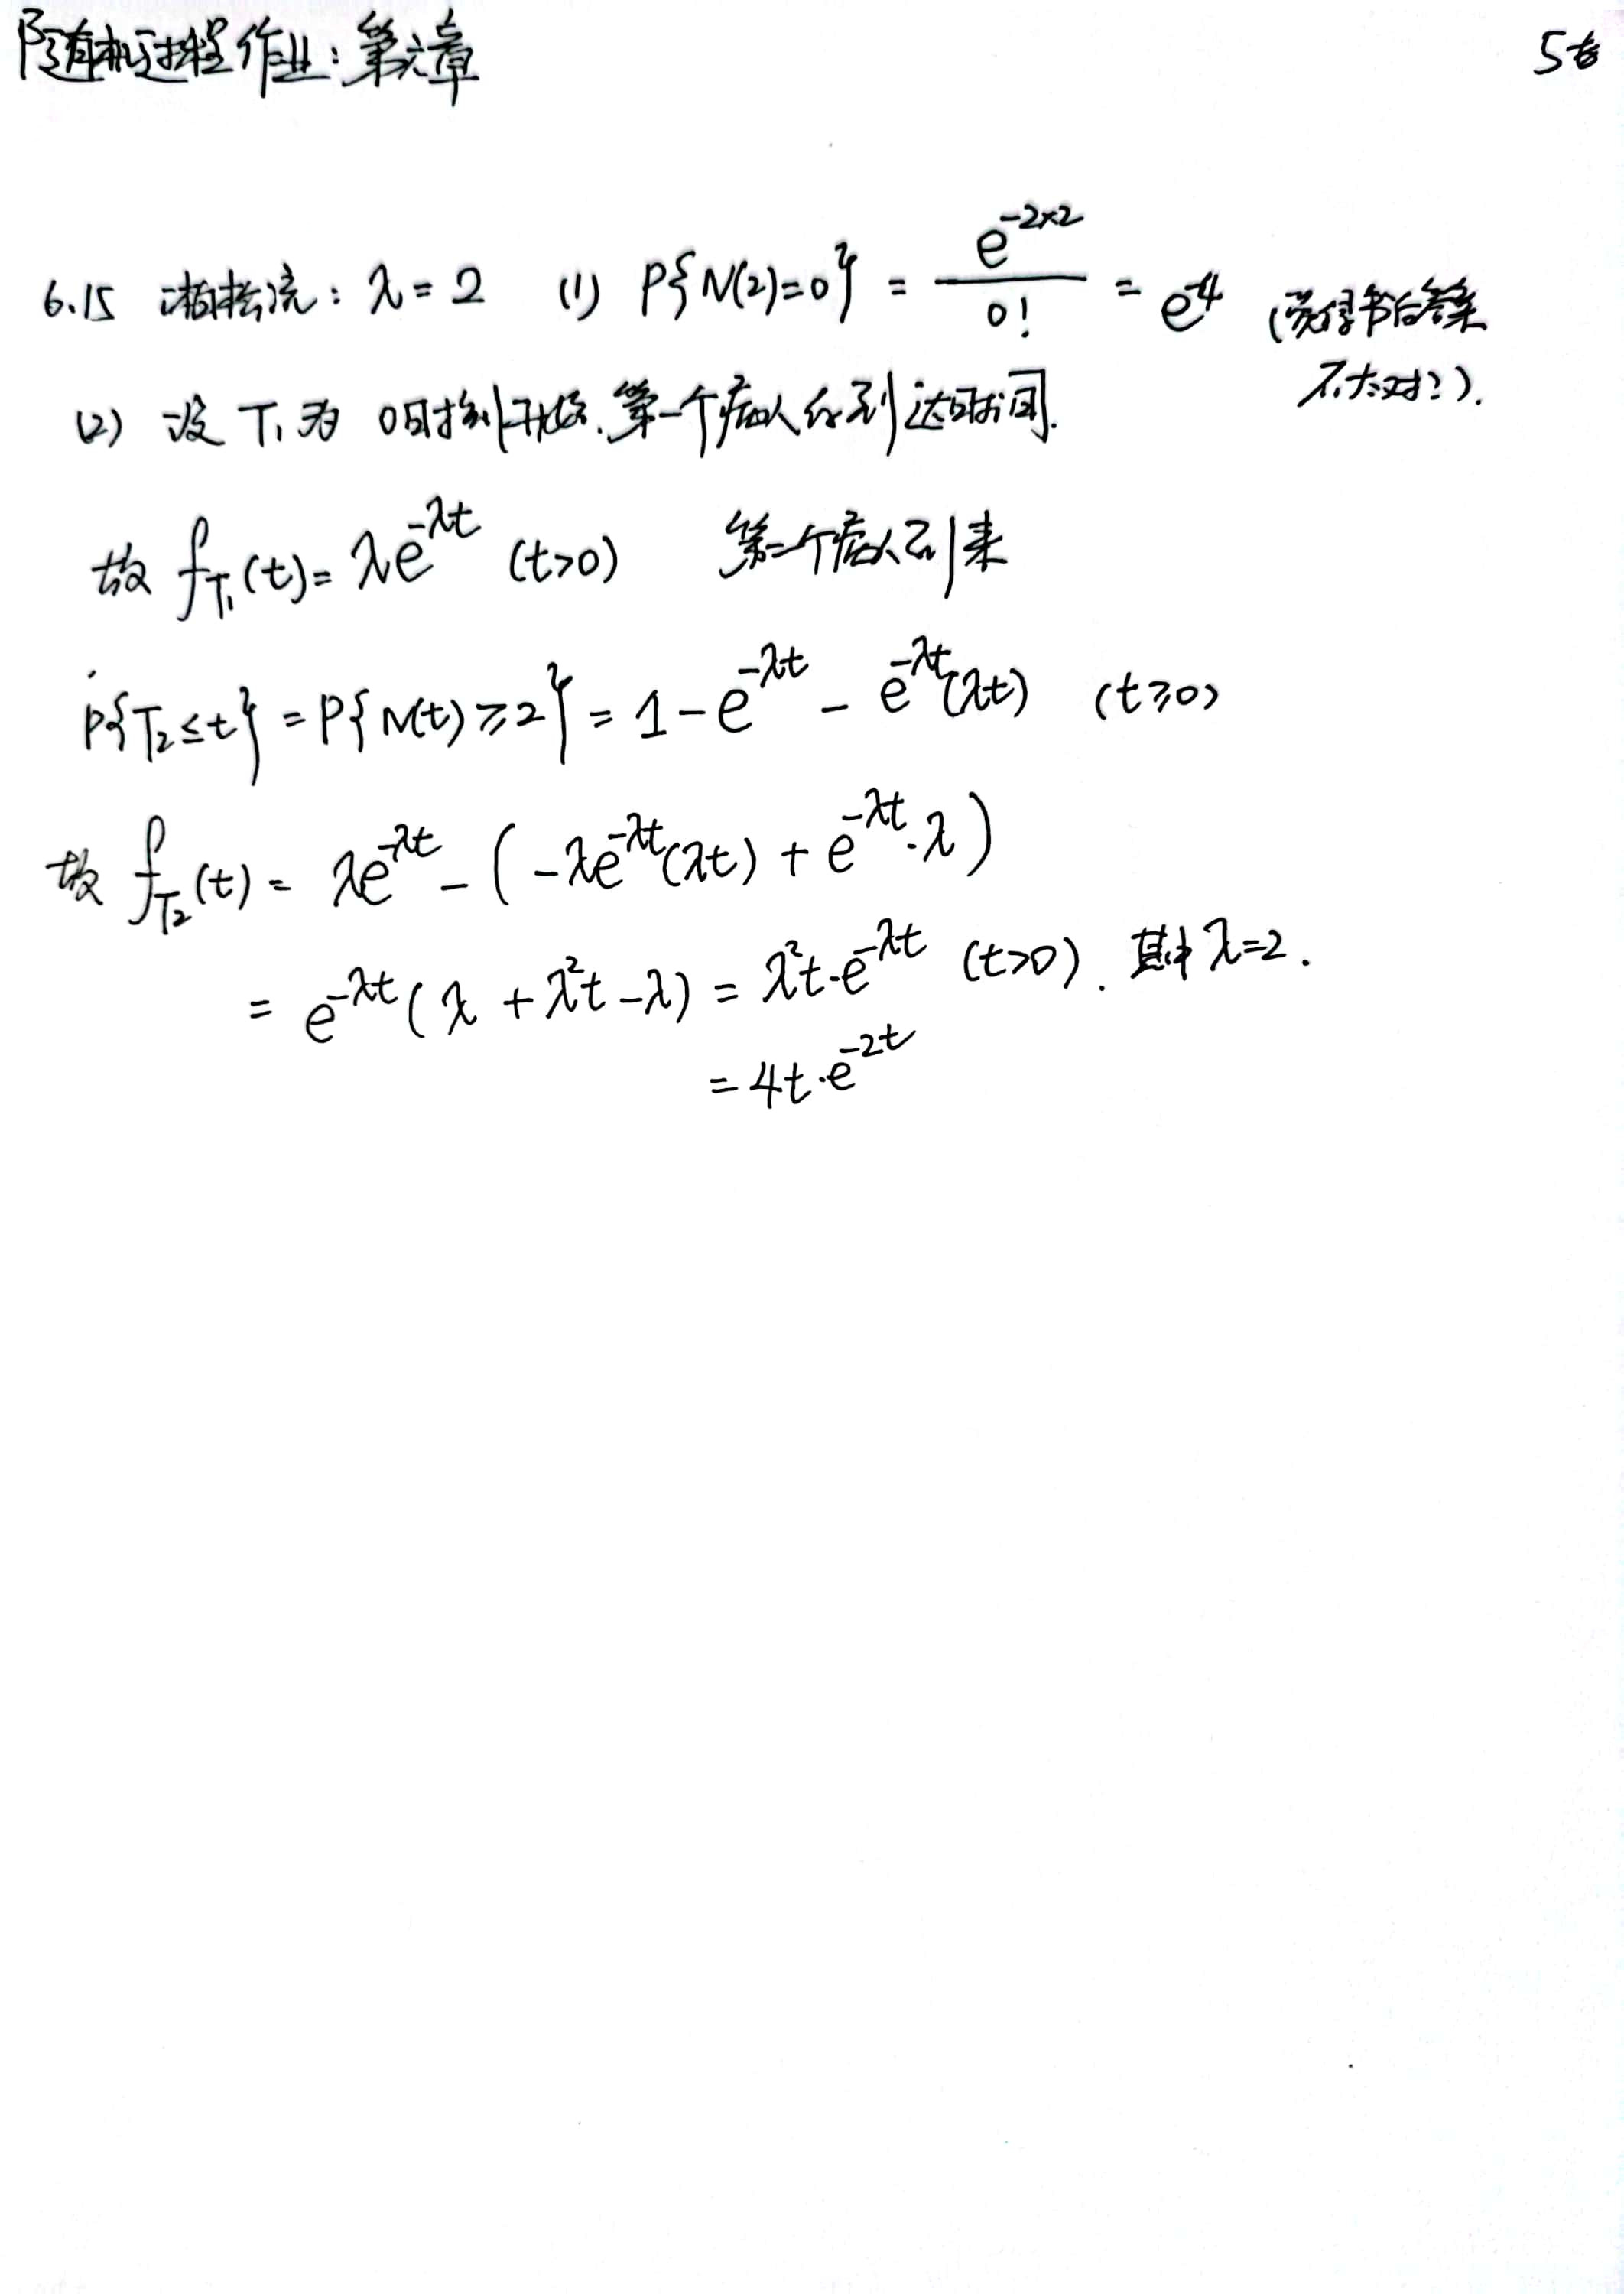 随机过程作业：第六章
6.15 泊松流：λ=2 (1) P{N(2)=0} = e^{-2×2}/0! = e^{-4} (觉得书后答案
不太对？).
(2) 设 T₁为 0时刻开始.第一个病人的到达时间.
故 f_{T₁}(t)=λe^{-λt} (t>0) 第二个病人到来
P{T₂≤t} = P{N(t)≥2} = 1-e^{-λt} - e^{-λt}(λt) (t≥0)
故 f_{T₂}(t) = λe^{-λt} - (-λe^{-λt}(λt) + e^{-λt}·λ)
= e^{-λt}(λ + λ²t - λ) = λ²t·e^{-λt} (t>0). 其中λ=2.
= 4t·e^{-2t}